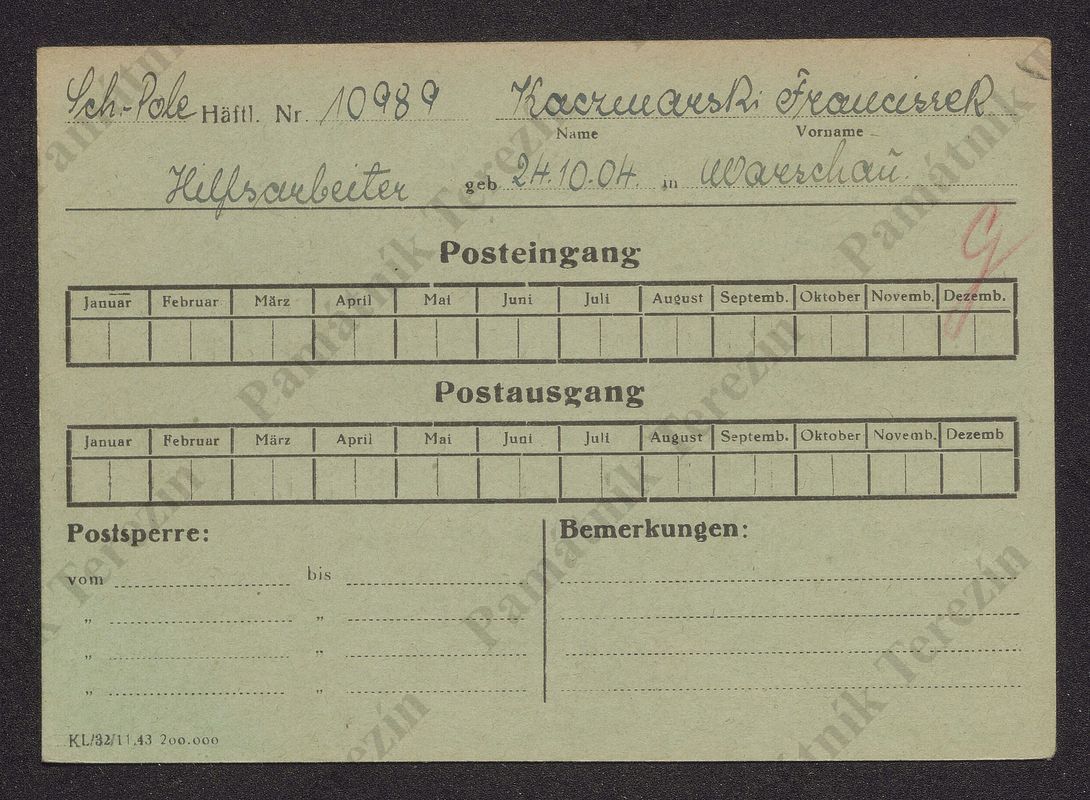 Sch-Pole Häftl. Nr. 10989 Kaczmarski Franciszek
Name Vorname
Hilfsarbeiter geb. 24.10.04. in Warschau.
Posteingang
Januar Februar März April Mai Juni Juli August Septemb. Oktober Novemb. Dezemb.
Postausgang
Januar Februar März April Mai Juni Juli August Septemb. Oktober Novemb. Dezemb
Postsperre: Bemerkungen:
vom bis
„ „
„ „
„ „
KL/32/11.43 200.000
Památník Terezín